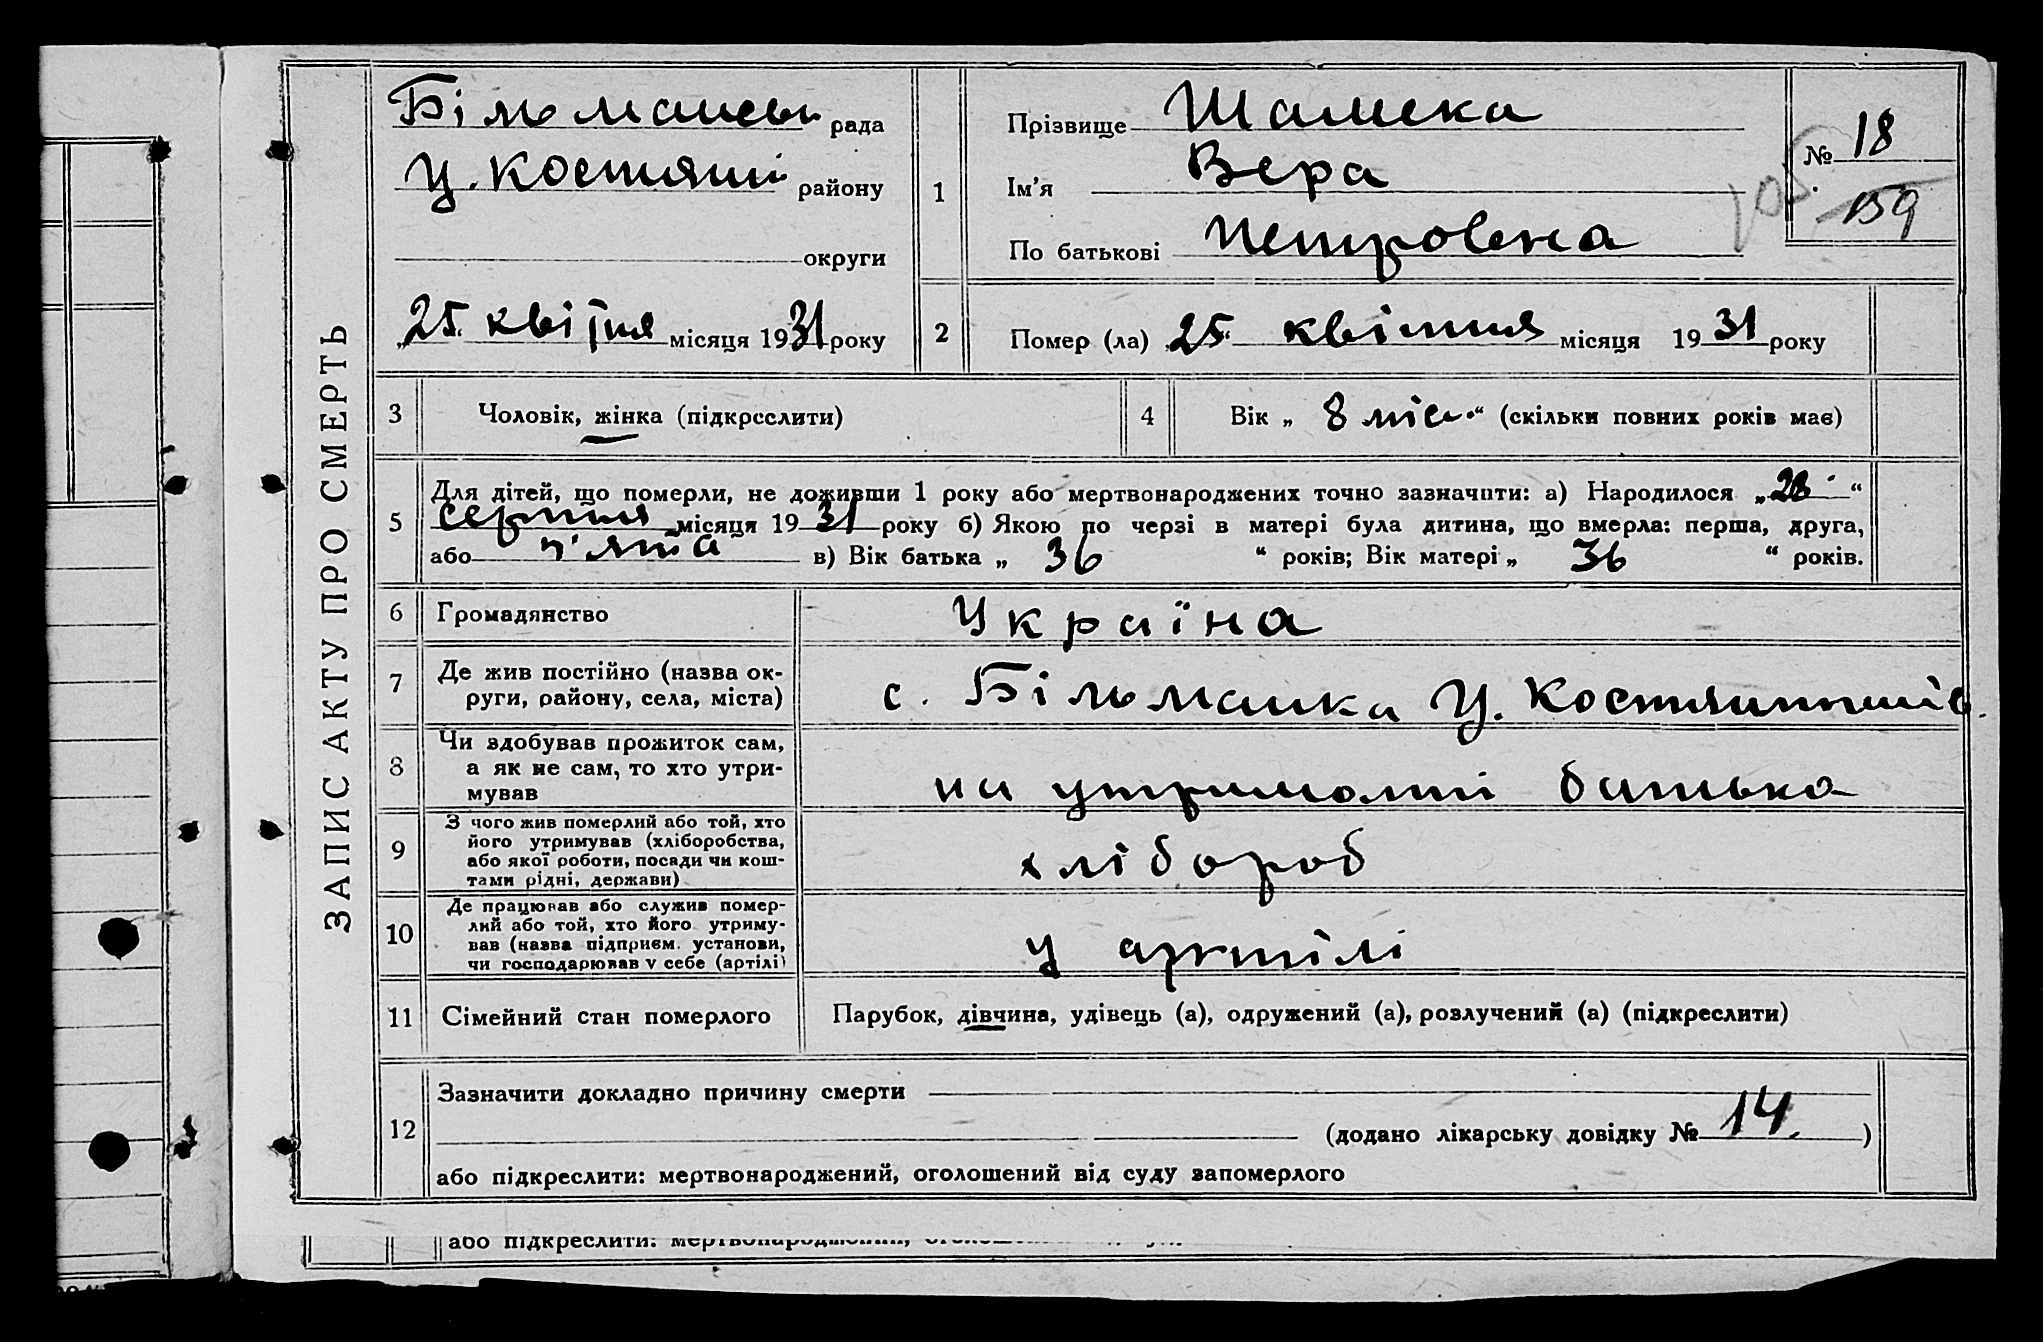 ЗАПИС АКТУ ПРО СМЕРТЬ
Більманськ рада
Ц. Костянт району
округи
„25“ квітня місяця 1931 року
1
Прізвище Шамека
Ім’я Вера
По батькові Петровена
№ 18
159
2
Помер (ла) „25“ квітня місяця 1931 року
3 Чоловік, жінка (підкреслити)
4 Вік „ 8 міс.“ (скільки повних років має)
5 Для дітей, що померли, не доживши 1 року або мертвонароджених точно зазначити: а) Народилося „28“
серпня місяця 1931 року б) Якою по черзі в матері була дитина, що вмерла: перша, друга,
або п'ята в) Вік батька „ 36 “ років; Вік матері „ 36 “ років.
6 Громадянство Україна
7 Де жив постійно (назва ок-
руги, району, села, міста) с. Більманка Ц. Костянтинів.
8 Чи здобував прожиток сам,
а як не сам, то хто утри-
мував на утриманні батька
9 З чого жив померлий або той, хто
його утримував (хліборобства,
або якої роботи, посади чи кош-
тами рідні, держави) хлібороб
10 Де працював або служив помер-
лий або той, хто його утриму-
вав (назва підприєм. установи,
чи господарював у себе (артілі) у артілі
11 Сімейний стан померлого Парубок, дівчина, удівець (а), одружений (а), розлучений (а) (підкреслити)
12 Зазначити докладно причину смерти
(додано лікарську довідку № 14. )
або підкреслити: мертвонароджений, оголошений від суду запомерлого
або підкреслити: